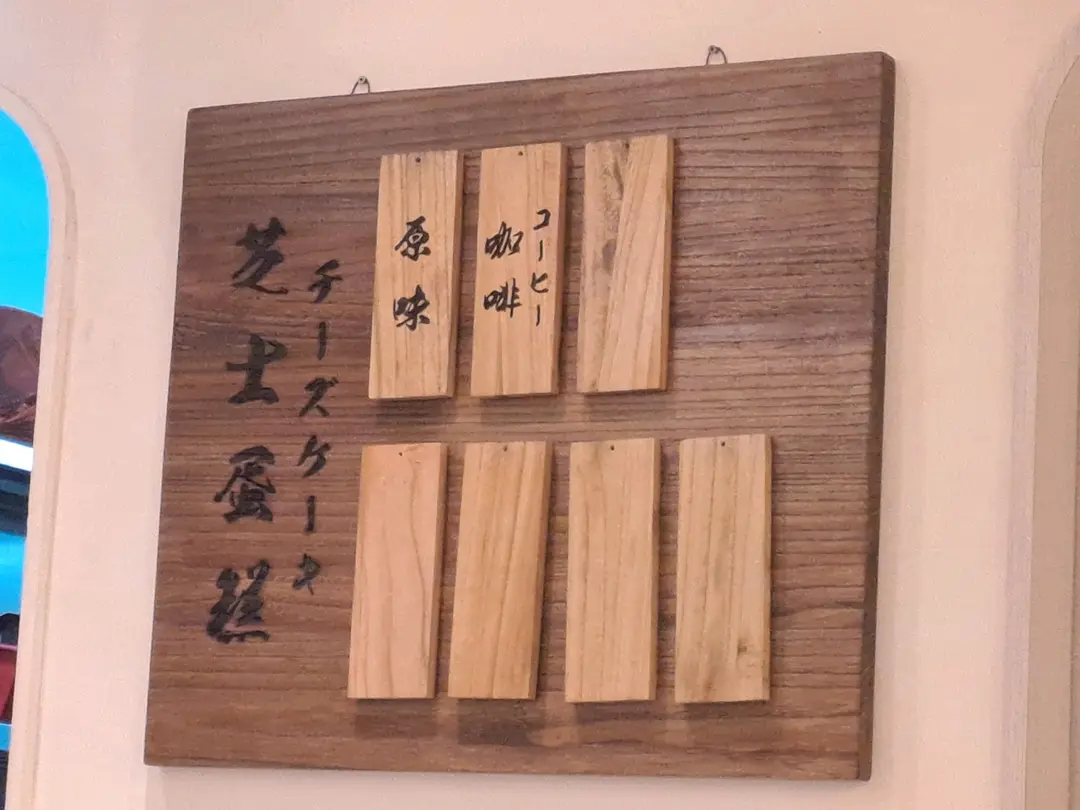 芝士蛋糕
チーズケーキ
原味
咖啡
コーヒー